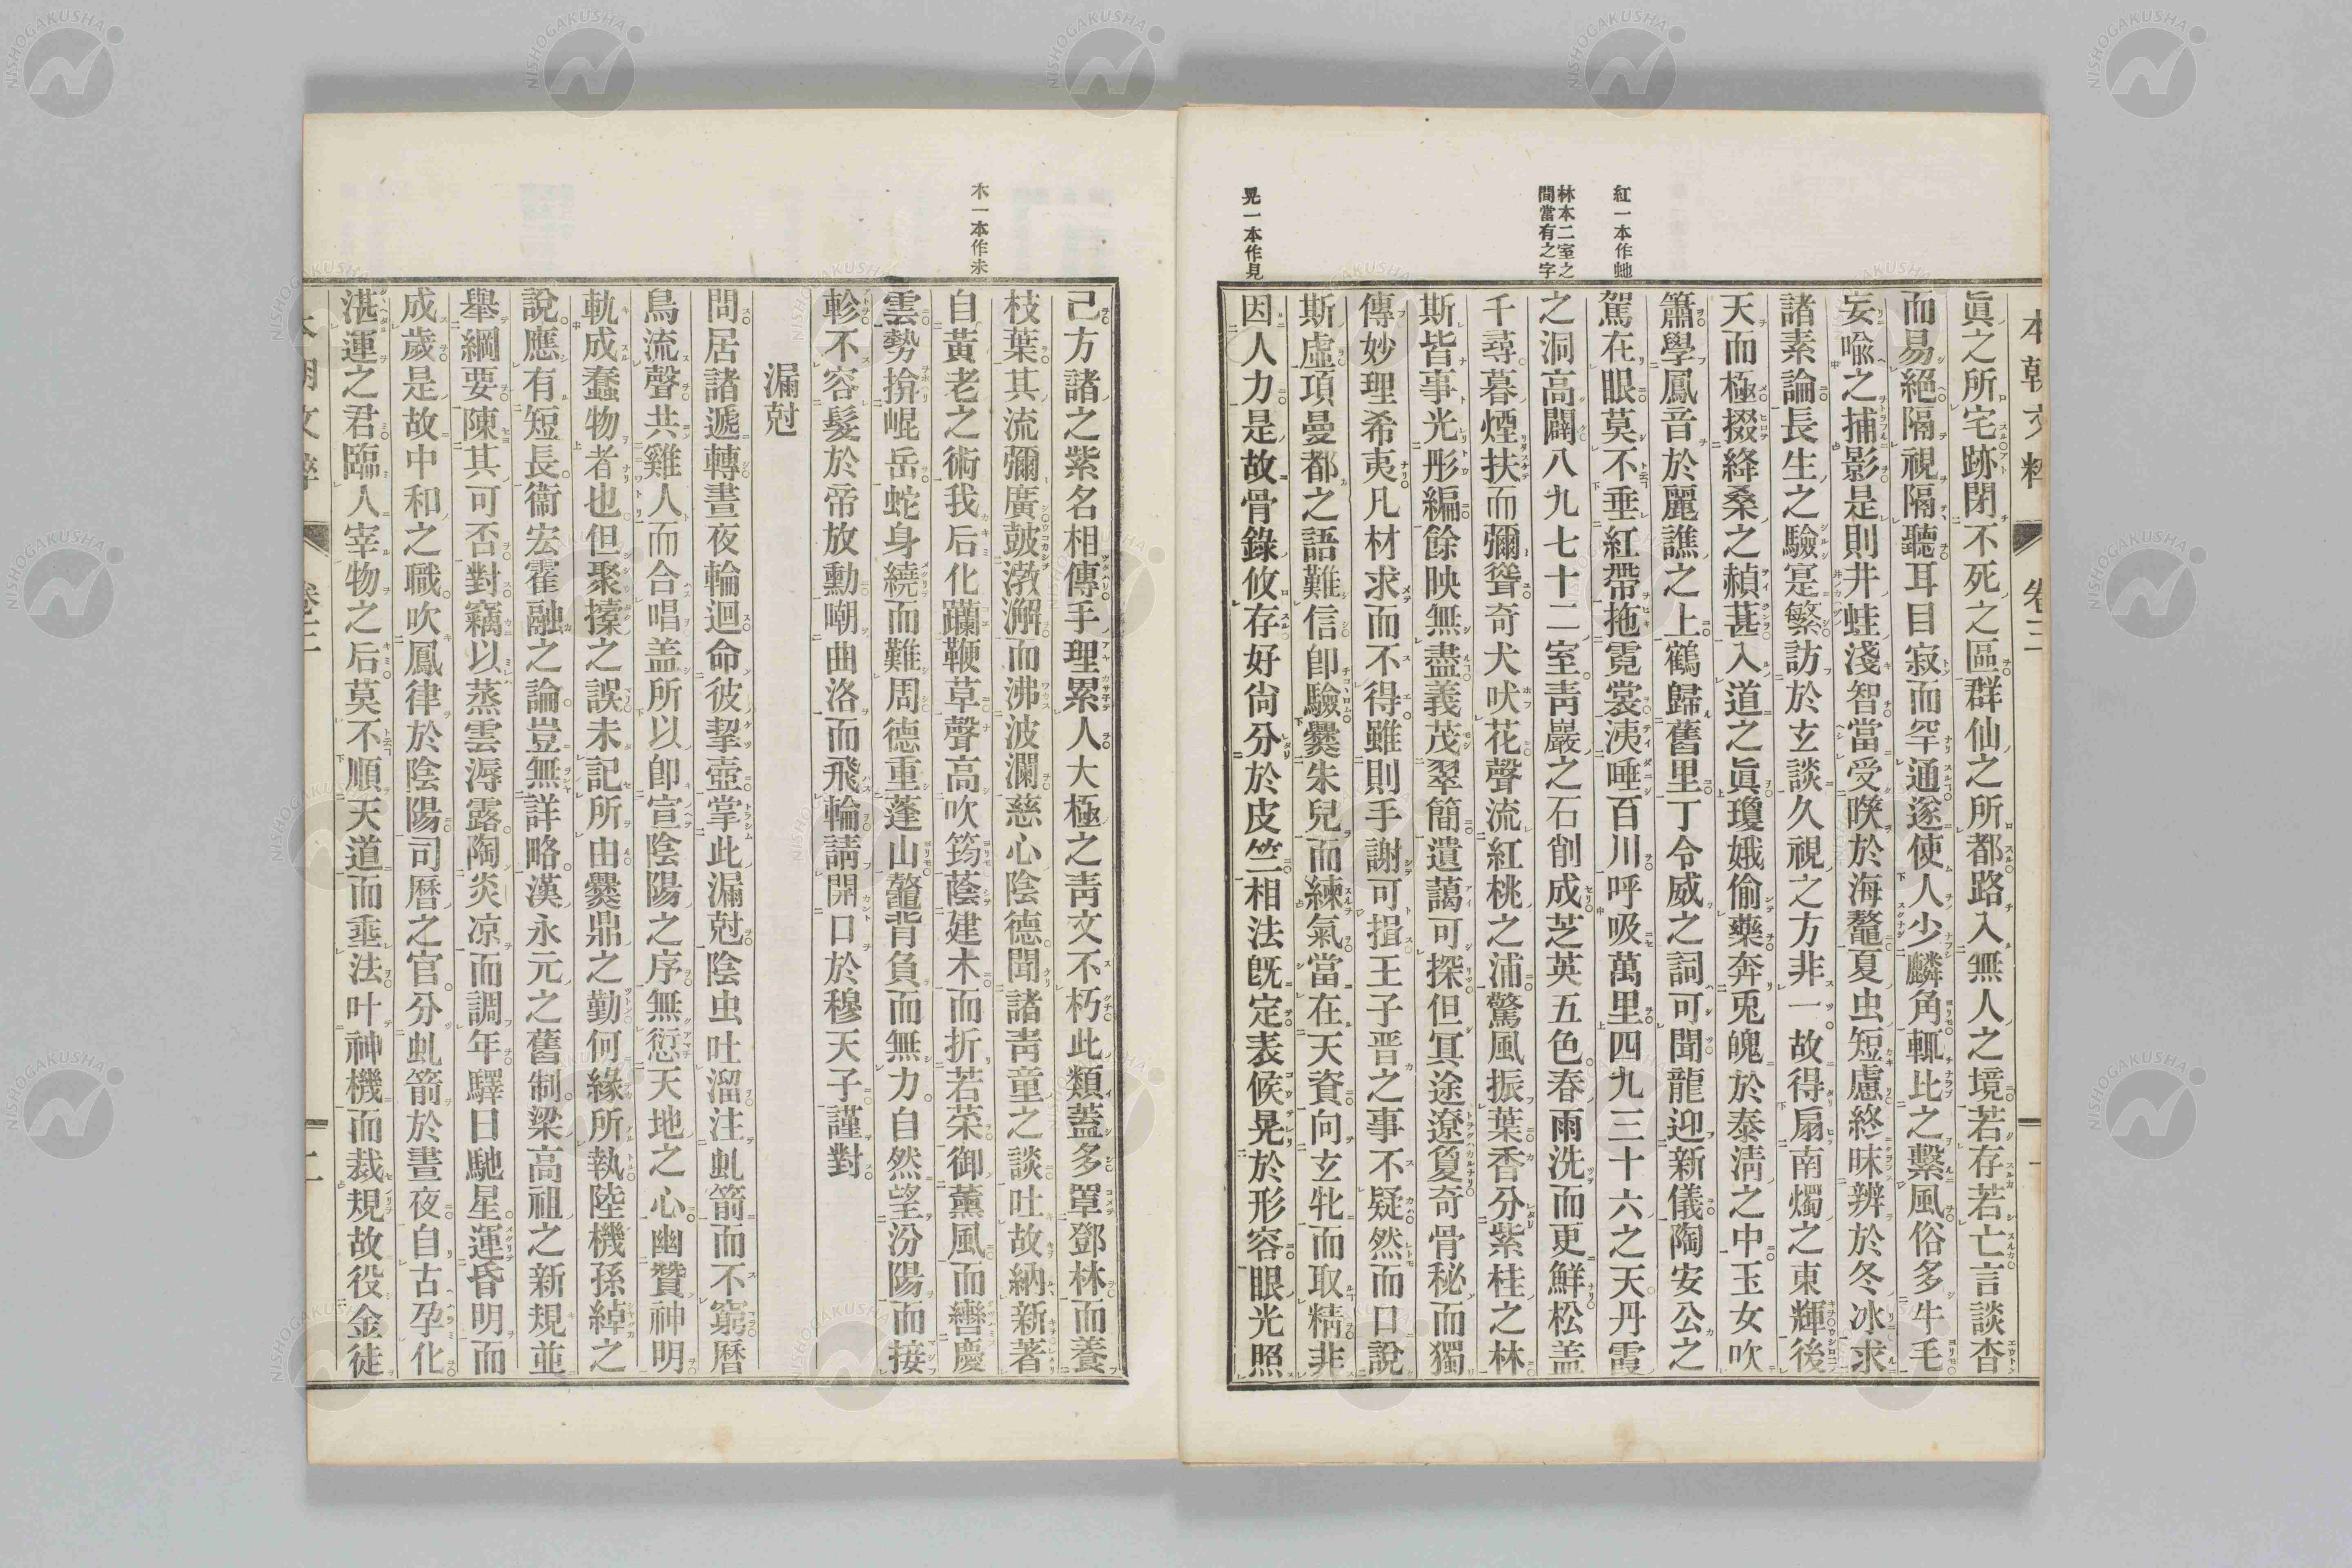 本朝文粹 卷三
眞之所宅跡閉不死之區群仙之所都路入無人之境若存若亡言談杳
而易絕隔視隔聽耳目寂而罕通遂使人少麟角輒比之繫風俗多牛毛
妄喩之捕影是則井蛙淺智當受暌於海鼇夏虫短慮終昧辨於冬冰求
諸素論長生之驗寔繁訪於玄談久視之方非一故得扇南燭之東輝後
天而極掇絳桑之赬葚入道之眞瓊娥偷藥奔兎魄於泰淸之中玉女吹
簫學鳳音於麗譙之上鶴歸舊里丁令威之詞可聞龍迎新儀陶安公之
駕在眼莫不垂紅帶拖霓裳洟唾百川呼吸萬里四九三十六之天丹霞
之洞高闢八九七十二室靑巖之石削成芝英五色春雨洗而更鮮松盖
千尋暮煙扶而彌聳奇犬吠花聲流紅桃之浦驚風振葉香分紫桂之林
斯皆事光彤編餘映無盡義茂翠簡遺藹可探但冥途遼夐奇骨秘而獨
傳妙理希夷凡材求而不得雖則手謝可揖王子晋之事不疑然而口說
斯虛項曼都之語難信卽驗爨朱兒而練氣當在天資向玄牝而取精非
因人力是故骨錄攸存好尙分於皮竺相法旣定表候晃於形容眼光照
紅一本作虵
林本二室之
間當有之字
晃一本作見
己方諸之紫名相傳手理累人大極之靑文不朽此類蓋多罩鄧林而養
枝葉其流彌廣皷渤澥而沸波瀾慈心陰德聞諸靑童之談吐故納新著
自黃老之術我后化蹣鞭草聲高吹筠蔭建木而折若荣御薰風而轡慶
雲勢揜崐岳蛇身繞而難周德重蓬山鼇背負而無力自然望汾陽而接
軫不容髮於帝放勳嘲曲洛而飛輪請開口於穆天子謹對
漏尅
問居諸遞轉晝夜輪迴命彼挈壺掌此漏尅陰虫吐溜注虬箭而不窮曆
鳥流聲共雞人而合唱盖所以卽宣陰陽之序無愆天地之心幽贊神明
軌成蠢物者也但聚㨷之誤未記所由爨鼎之勤何緣所執陸機孫綽之
說應有短長衞宏霍融之論豈無詳略漢永元之舊制梁高祖之新規並
擧綱要陳其可否對竊以蒸雲溽露陶炎凉而調年驛日馳星運昏明而
成歲是故中和之職吹鳳律於陰陽司曆之官分虬箭於晝夜自古孕化
湛運之君臨人宰物之后莫不順天道而垂法叶神機而裁規故役金徒
木一本作未
本朝文粹 卷三 二
NISHOGAKUSHA